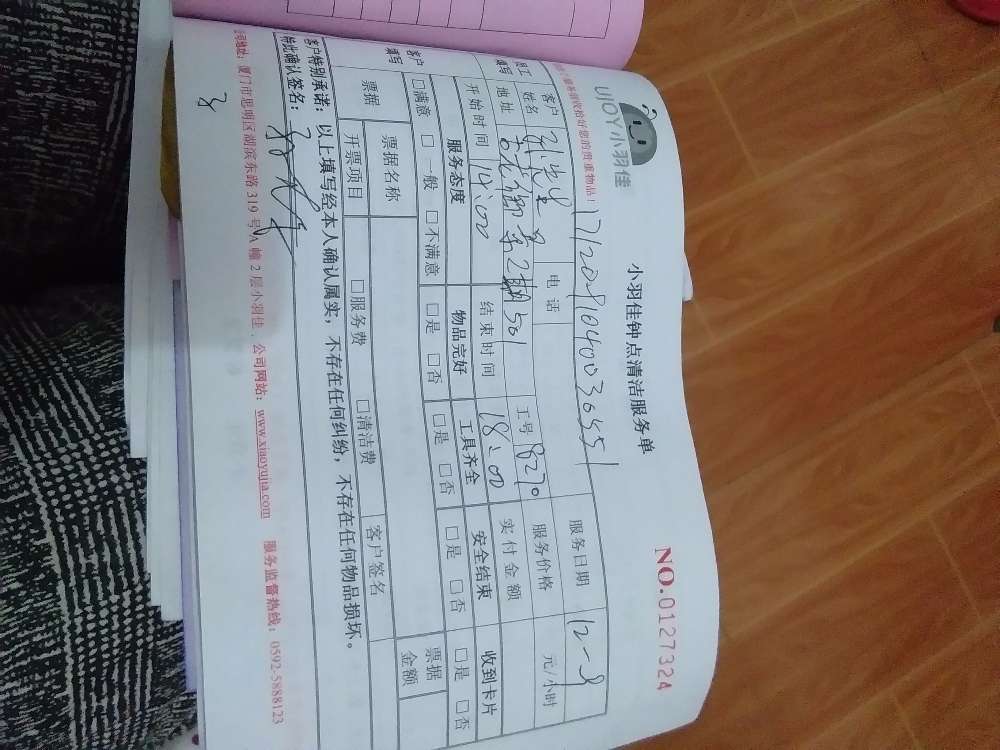 UJOY小羽佳
小羽佳钟点清洁服务单
NO.0127324
服务前收拾好您的贵重物品!
1712091040036551
服务日期
12-9
员工填写
客户姓名
先生
电话
服务价格
元/小时
地址
2 501
工号
8270
实付金额
开始时间
14:00
结束时间
18:00
客户填写
服务态度
物品完好
工具齐全
安全结束
收到卡片
□满意 □一般 □不满意
□是 □否
□是 □否
□是 □否
□是 □否
票据
票据名称
客户签名
票据金额
开票项目
□服务费
□清洁费
客户特别承诺:以上填写经本人确认属实,不存在任何纠纷,不存在任何物品损坏。
特此确认签名:
公司地址:厦门市思明区湖滨东路319号A幢2层小羽佳.公司网站:www.xiaoyujia.com 服务监督热线:0592-5888123